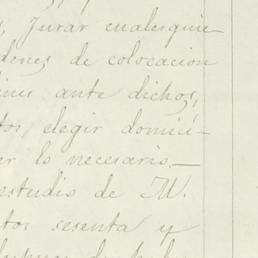 , Jurar cualesquie
denes de colocacion
ines ante dichos,
tos, elegir domici-
er lo necesario.—
estudio de M.
tos sesenta y